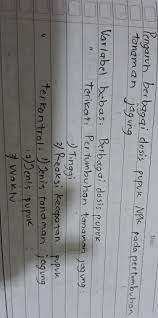 Pengaruh berbagai dosis pupuk NPK pada pertumbuhan
tanaman jagung
Variabel bebas : Berbagai dosis pupuk
" terikat : Pertumbuhan tanaman jagung
1) Tinggi
2) Reaksi pupuk
" terkontrol : 1) Jenis tanaman jagung
2) Jenis pupuk
3) Waktu